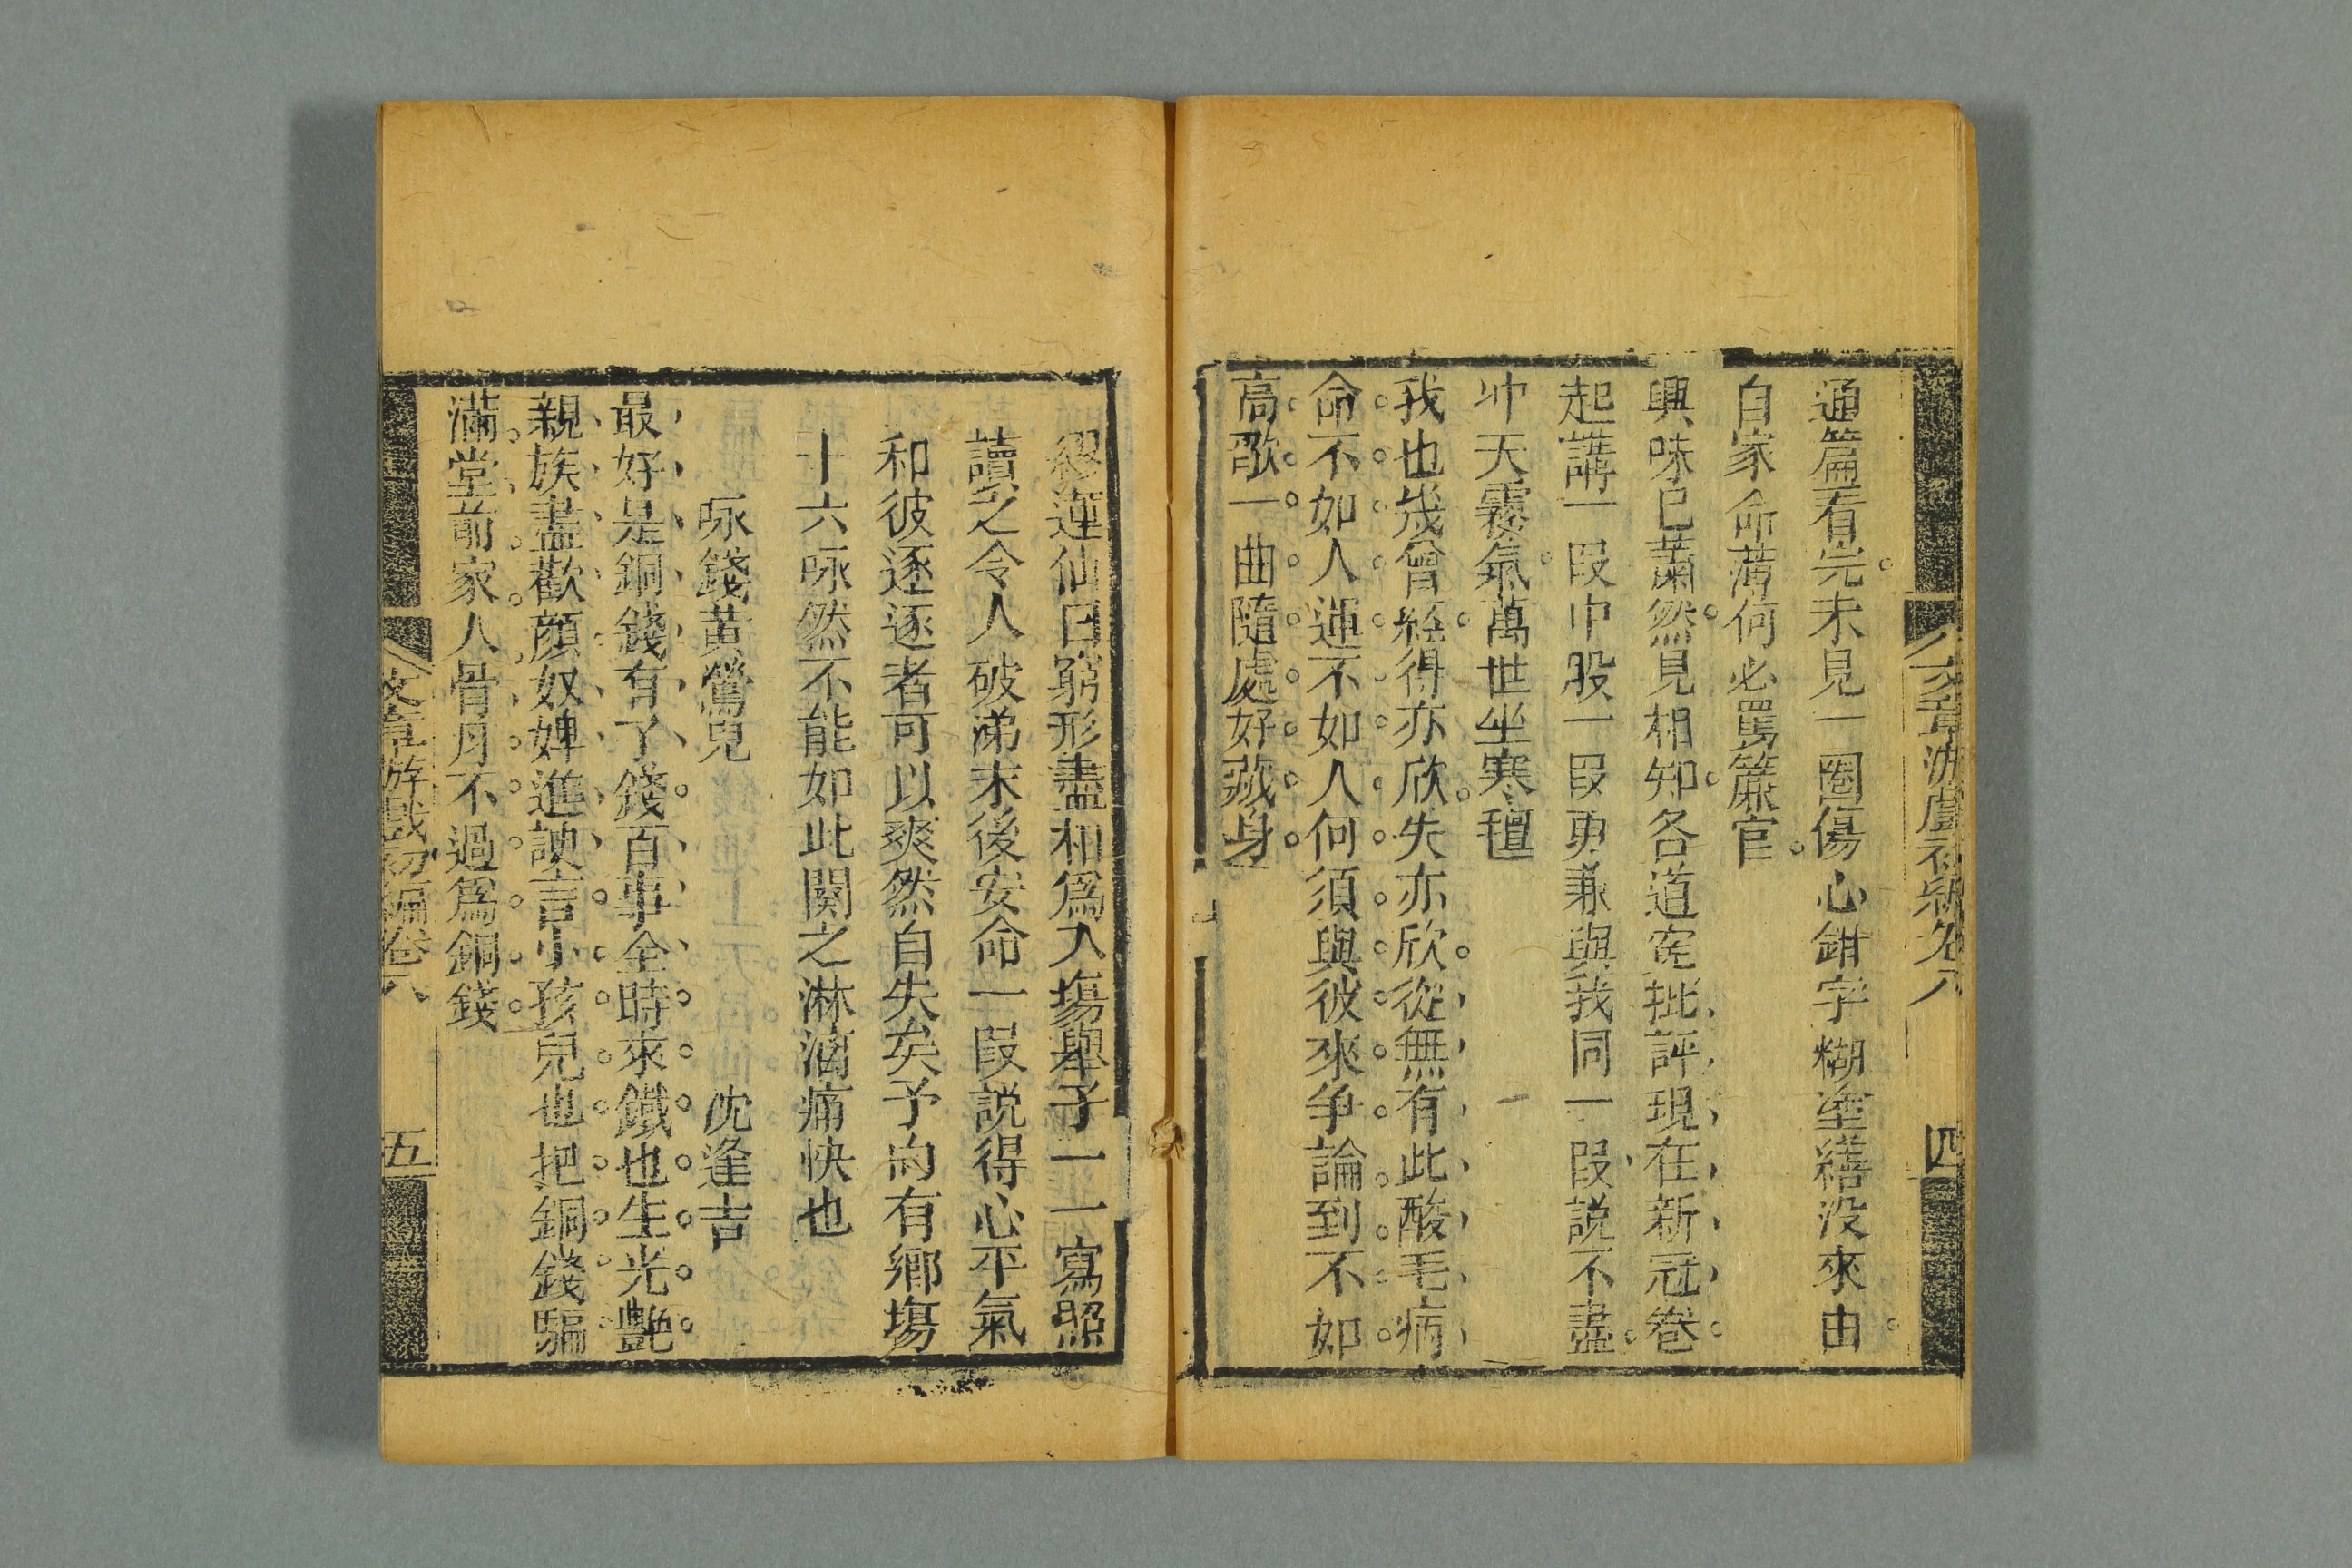 文章游戲初編卷八
四
通篇看完未見一圈傷心鉗字糊塗繕没來由
自家命薄何必罵簾官
興味已蕭然見相知各道寃批評現在新冠卷
起講一段中股一段更兼與我同一段説不盡
冲天霧氣萬世坐寒氊
我也幾曾經得亦欣失亦欣從無有此酸毛病
命不如人運不如人何須與彼來争論到不如
高歌一曲隨處好藏身
繆蓮仙曰窮形盡相爲入塲舉子一一寫照
讀之令人破涕末後安命一段説得心平氣
和彼逐逐者可以爽然自失矣予向有鄉塲
十六咏然不能如此闋之淋漓痛快也
咏錢黄鶯兒 沈逢吉
最好是銅錢有了錢百事全時來鐵也生光艷
親族盡歡顔奴婢進諛言小孩兒也把銅錢騙
滿堂前家人骨月不過爲銅錢
文章游戲初編卷八
五